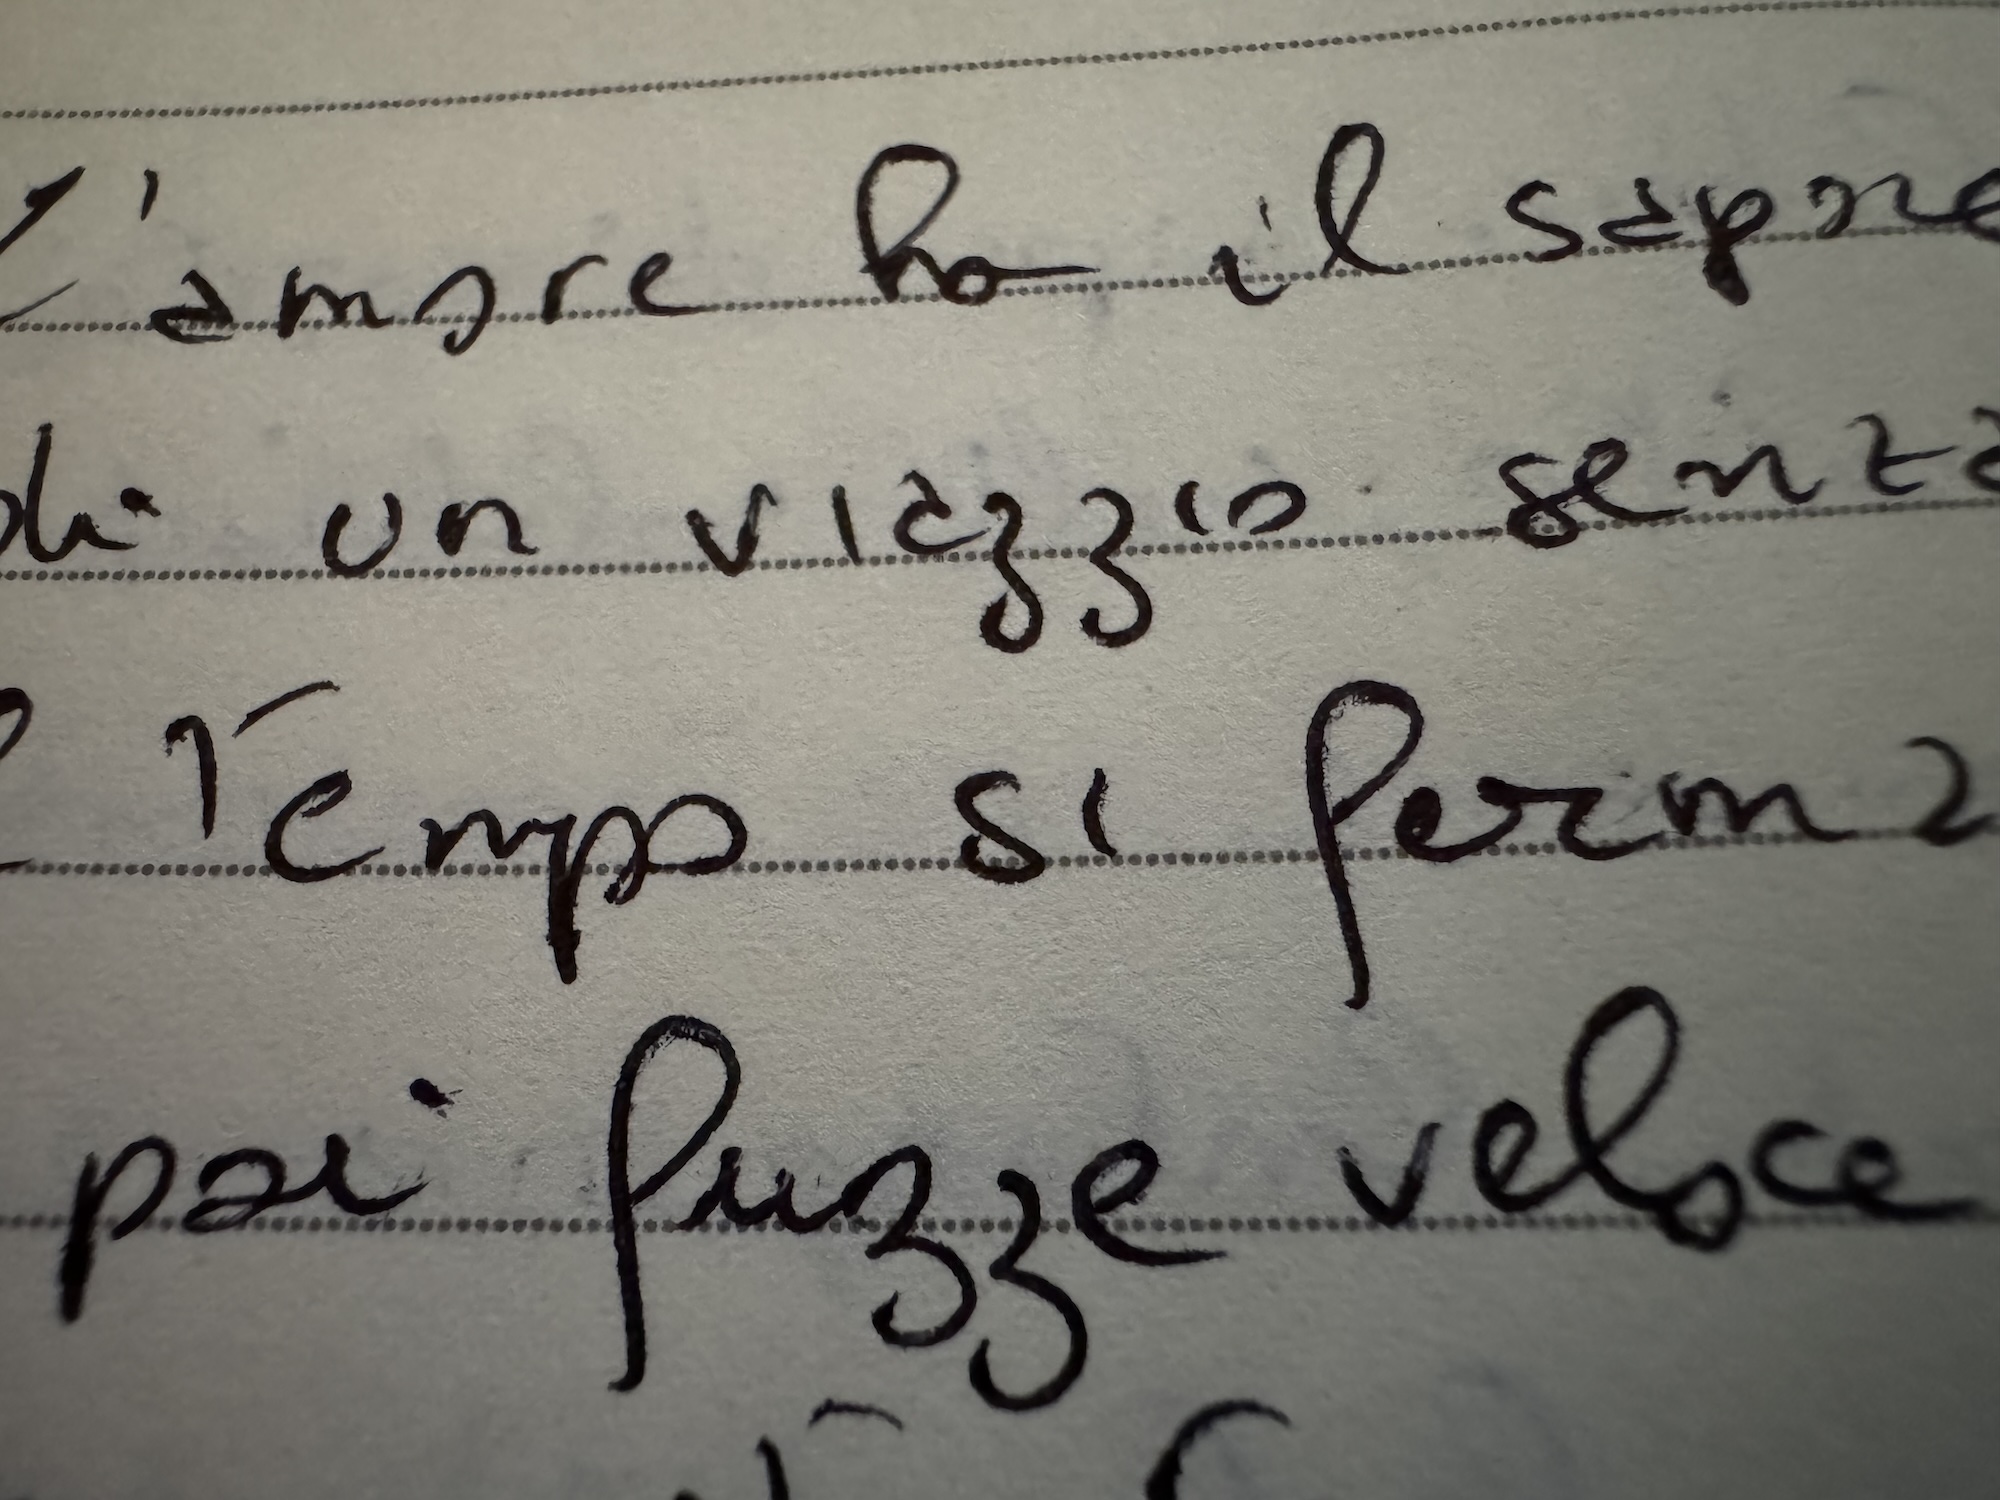 L'amore ha il sapore
di un viaggio senza
Tempo si ferma
poi fugge veloce